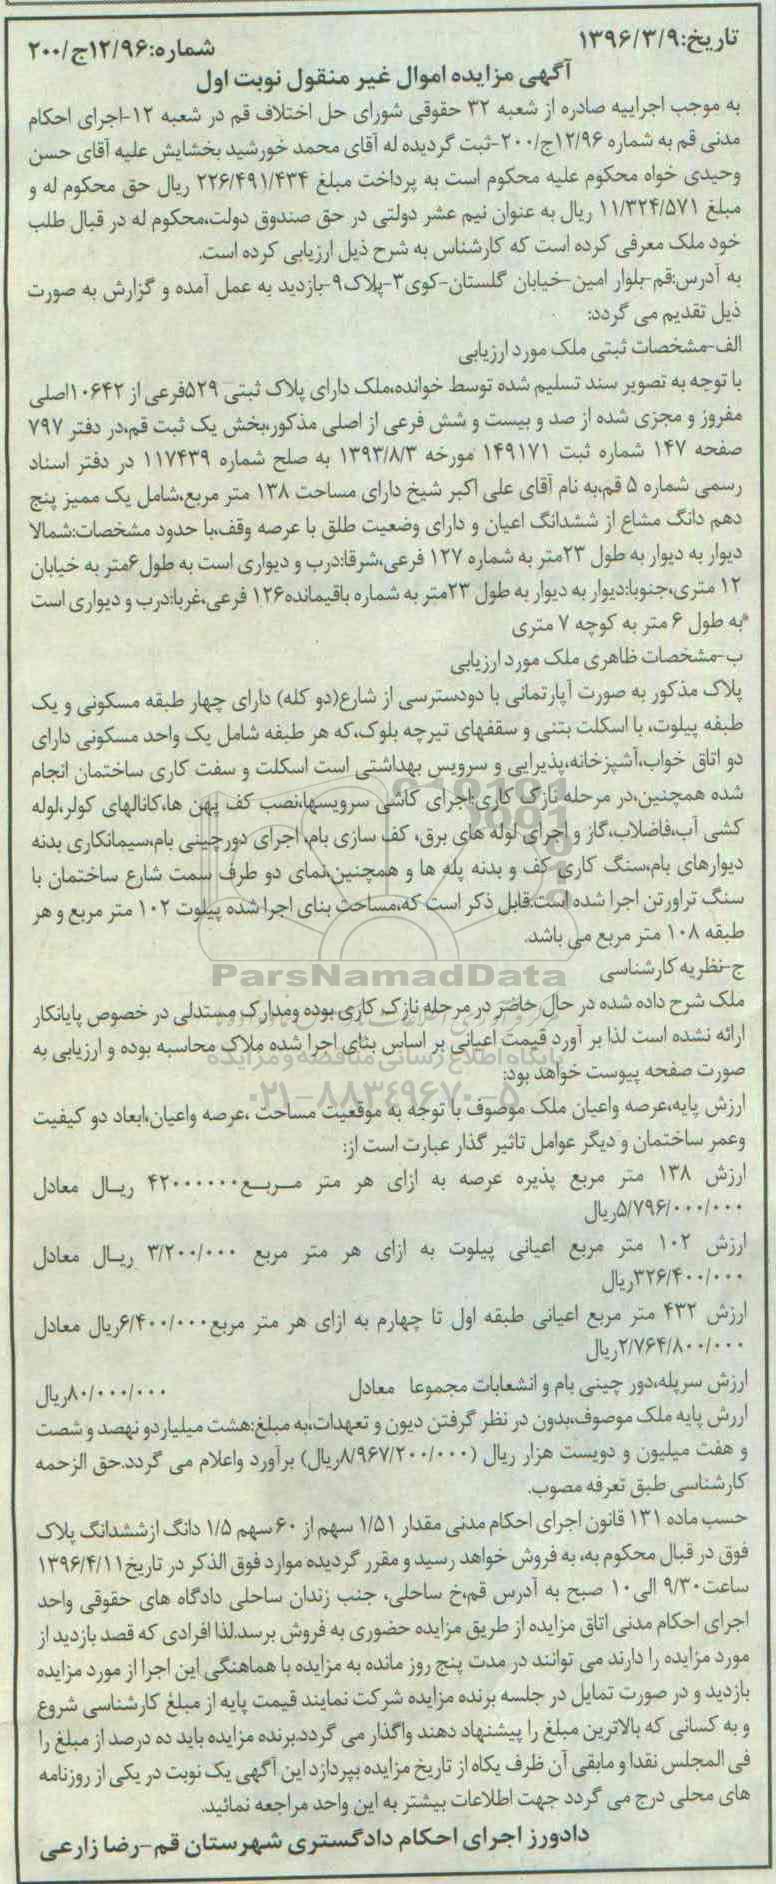 تاریخ:۱۳۹۶/۳/۹
شماره:۱۲/۹۶ج/۲۰۰
آگهی مزایده اموال غیر منقول نوبت اول
به موجب اجراییه صادره از شعبه ۳۲ حقوقی شورای حل اختلاف قم در شعبه ۱۲-اجرای احکام
مدنی قم به شماره ۱۲/۹۶ج/۲۰۰-ثبت گردیده له آقای محمد خورشید بخشایش علیه آقای حسن
وحیدی خواه محکوم علیه محکوم است به پرداخت مبلغ ۲۲۶/۴۹۱/۴۳۴ ریال حق محکوم له و
مبلغ ۱۱/۳۲۴/۵۷۱ ریال به عنوان نیم عشر دولتی در حق صندوق دولت،محکوم له در قبال طلب
خود ملک معرفی کرده است که کارشناس به شرح ذیل ارزیابی کرده است.
به آدرس:قم-بلوار امین-خیابان گلستان-کوی۳-پلاک۹-بازدید به عمل آمده و گزارش به صورت
ذیل تقدیم می گردد:
الف-مشخصات ثبتی ملک مورد ارزیابی
با توجه به تصویر سند تسلیم شده توسط خوانده،ملک دارای پلاک ثبتی ۵۲۹فرعی از ۱۰۶۴۲اصلی
مفروز و مجزی شده از صد و بیست و شش فرعی از اصلی مذکور،بخش یک ثبت قم،در دفتر ۷۹۷
صفحه ۱۴۷ شماره ثبت ۱۴۹۱۷۱ مورخه ۱۳۹۳/۸/۳ به صلح شماره ۱۱۷۴۳۹ در دفتر اسناد
رسمی شماره ۵ قم،به نام آقای علی اکبر شیخ دارای مساحت ۱۳۸ متر مربع،شامل یک ممیز پنج
دهم دانگ مشاع از ششدانگ اعیان و دارای وضعیت طلق با عرصه وقف،با حدود مشخصات:شمالا
دیوار به دیوار به طول ۲۳متر به شماره ۱۲۷ فرعی،شرقا:درب و دیواری است به طول۶متر به خیابان
۱۲ متری،جنوبا:دیوار به دیوار به طول ۲۳متر به شماره باقیمانده۱۲۶ فرعی،غربا:درب و دیواری است
به طول ۶ متر به کوچه ۷ متری
ب-مشخصات ظاهری ملک مورد ارزیابی
پلاک مذکور به صورت آپارتمانی با دودسترسی از شارع(دو کله) دارای چهار طبقه مسکونی و یک
طبقه پیلوت، با اسکلت بتنی و سقفهای تیرچه بلوک،که هر طبقه شامل یک واحد مسکونی دارای
دو اتاق خواب،آشپزخانه،پذیرایی و سرویس بهداشتی است اسکلت و سفت کاری ساختمان انجام
شده همچنین،در مرحله نازک کاری:اجرای کاشی سرویسها،نصب کف پهن ها،کانالهای کولر،لوله
کشی آب،فاضلاب،گاز و اجرای لوله های برق، کف سازی بام، اجرای دورچینی بام،سیمانکاری بدنه
دیوارهای بام،سنگ کاری کف و بدنه پله ها و همچنین،نمای دو طرف سمت شارع ساختمان با
سنگ تراورتن اجرا شده است.قابل ذکر است که،مساحت بنای اجرا شده پیلوت ۱۰۲ متر مربع و هر
طبقه ۱۰۸ متر مربع می باشد.
ج-نظریه کارشناسی
ParsNamadData
ملک شرح داده شده در حال حاضر در مرحله نازک کاری بوده ومدارک مستدلی در خصوص پایانکار
ارائه نشده است لذا بر آورد قیمت اعیانی بر اساس بنای اجرا شده ملاک محاسبه بوده و ارزیابی به
پایگاه اطلاع رسانی مناقصه و مزایده
صورت صفحه پیوست خواهد بود:
۰۲۱-۸۸۳۴۹۶۷۰-۵
ارزش پایه،عرصه واعیان ملک موصوف با توجه به موقعیت مساحت ،عرصه واعیان،ابعاد دو کیفیت
وعمر ساختمان و دیگر عوامل تاثیر گذار عبارت است از:
ارزش ۱۳۸ متر مربع پذیره عرصه به ازای هر متر مربع۴۲۰۰۰۰۰۰ ریال معادل
۵/۷۹۶/۰۰۰/۰۰۰ریال
ارزش ۱۰۲ متر مربع اعیانی پیلوت به ازای هر متر مربع ۳/۲۰۰/۰۰۰ ریال معادل
۳۲۶/۴۰۰/۰۰۰ریال
ارزش ۴۳۲ متر مربع اعیانی طبقه اول تا چهارم به ازای هر متر مربع۶/۴۰۰/۰۰۰ریال معادل
۲/۷۶۴/۸۰۰/۰۰۰ریال
ارزش سرپله،دور چینی بام و انشعابات مجموعا معادل ۸۰/۰۰۰/۰۰۰ریال
ارزش پایه ملک موصوف،بدون در نظر گرفتن دیون و تعهدات،به مبلغ:هشت میلیاردو نهصد و شصت
و هفت میلیون و دویست هزار ریال (۸/۹۶۷/۲۰۰/۰۰۰ریال) برآورد واعلام می گردد.حق الزحمه
کارشناسی طبق تعرفه مصوب.
حسب ماده ۱۳۱ قانون اجرای احکام مدنی مقدار ۱/۵۱ سهم از ۶۰ سهم ۱/۵ دانگ ازششدانگ پلاک
فوق در قبال محکوم به، به فروش خواهد رسید و مقرر گردیده موارد فوق الذکر در تاریخ۱۳۹۶/۴/۱۱
ساعت۹/۳۰ الی۱۰ صبح به آدرس قم،خ ساحلی، جنب زندان ساحلی دادگاه های حقوقی واحد
اجرای احکام مدنی اتاق مزایده از طریق مزایده حضوری به فروش برسد.لذا افرادی که قصد بازدید از
مورد مزایده را دارند می توانند در مدت پنج روز مانده به مزایده با هماهنگی این اجرا از مورد مزایده
بازدید و در صورت تمایل در جلسه برنده مزایده شرکت نمایند قیمت پایه از مبلغ کارشناسی شروع
و به کسانی که بالاترین مبلغ را پیشنهاد دهند واگذار می گردد.برنده مزایده باید ده درصد از مبلغ را
فی المجلس نقدا و مابقی آن ظرف یکاه از تاریخ مزایده بپردازد.این آگهی یک نوبت در یکی از روزنامه
های محلی درج می گردد جهت اطلاعات بیشتر به این واحد مراجعه نمائید.
دادورز اجرای احکام دادگستری شهرستان قم-رضا زارعی